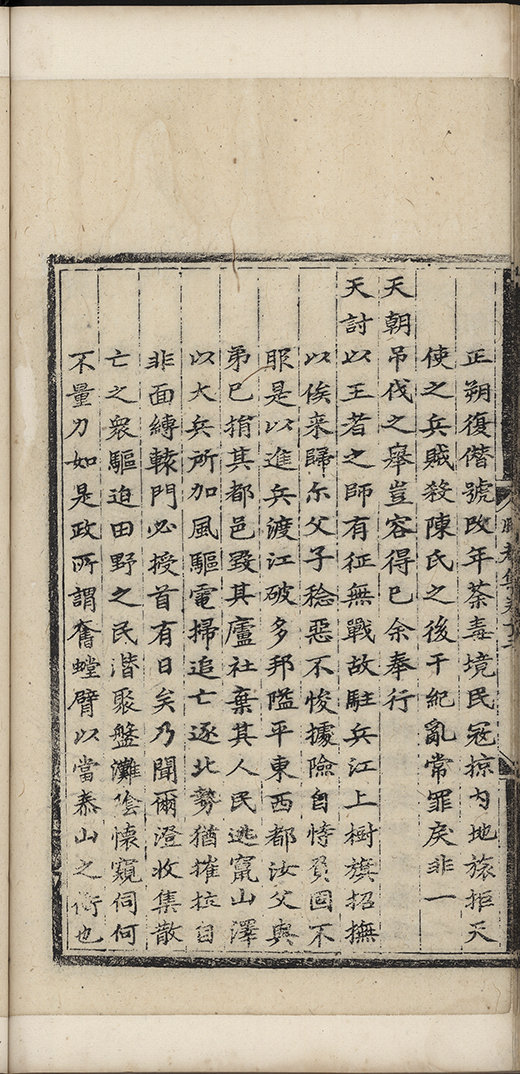 正朔復僭號改年荼毒境民冠掠内地旅拒天
使之兵賊殺陳氏之後干紀亂常罪戾非一
天朝吊伐之舉豈容得已余奉行
天討以王者之師有征無戰故駐兵江上樹旗招撫
以俟来歸尓父子稔惡不悛據險自恃負固不
服是以進兵渡江破多邦隘平東西都汝父與
弟已捐其都邑毁其廬社棄其人民逃竄山澤
以大兵所加風驅電掃追亡逐北勢猶摧拉自
非面縛轅門必授首有日矣乃聞爾澄收集散
亡之衆驅迫田野之民潛聚盤灘陰懷窺伺何
不量力如是政所謂奮螳臂以當泰山之衝也